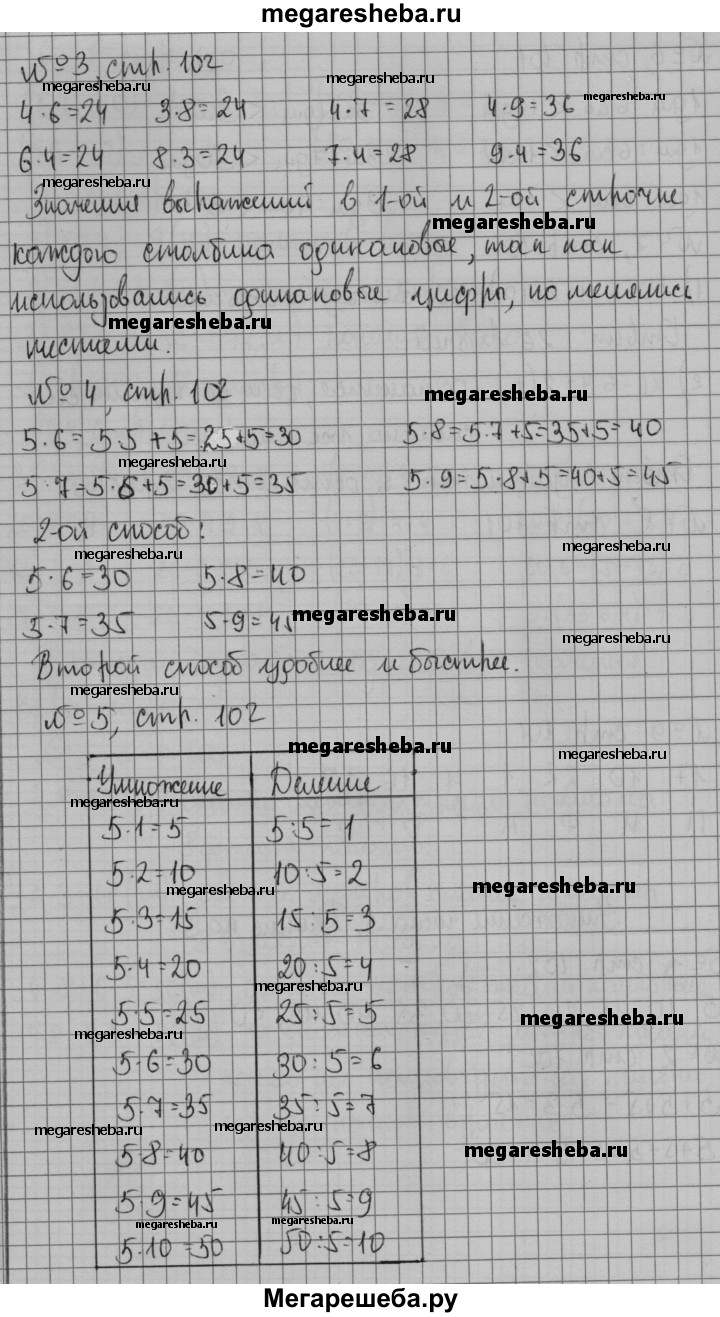 megaresheba.ru
№3, стр. 102
megaresheba.ru megaresheba.ru megaresheba.ru
4·6=24 3·8=24 4·7=28 4·9=36
6·4=24 8·3=24 7·4=28 9·4=36
megaresheba.ru
Значения выражений в 1-ой и 2-ой строчке
megaresheba.ru
каждого столбика одинаковые, так как
использовались одинаковые цифры, но менялись
megaresheba.ru
местами.
№4, стр. 102
megaresheba.ru
5·6=5·5+5=25+5=30 5·8=5·7+5=35+5=40
megaresheba.ru
5·7=5·6+5=30+5=35 5·9=5·8+5=40+5=45
2-ой способ:
megaresheba.ru megaresheba.ru
5·6=30 5·8=40
5·7=35 5·9=45 megaresheba.ru
megaresheba.ru
Второй способ удобнее и быстрее.
megaresheba.ru
№5, стр. 102
megaresheba.ru megaresheba.ru
Умножение Деление
megaresheba.ru
5·1=5 5:5=1
5·2=10 10:5=2
megaresheba.ru megaresheba.ru
5·3=15 15:5=3
5·4=20 20:5=4
megaresheba.ru
5·5=25 25:5=5 megaresheba.ru
megaresheba.ru
5·6=30 30:5=6
5·7=35 35:5=7
megaresheba.ru megaresheba.ru
5·8=40 40:5=8 megaresheba.ru
5·9=45 45:5=9
megaresheba.ru megaresheba.ru
5·10=50 50:5=10
Мегарешеба.ру